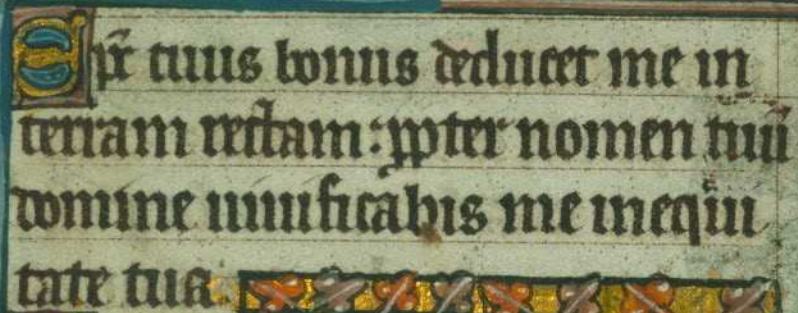 Spr̄ tuus bonus deducet me in
terram rectam: ꝓpter nomen tuū
domine uiuificabis me inequi
tate tua.